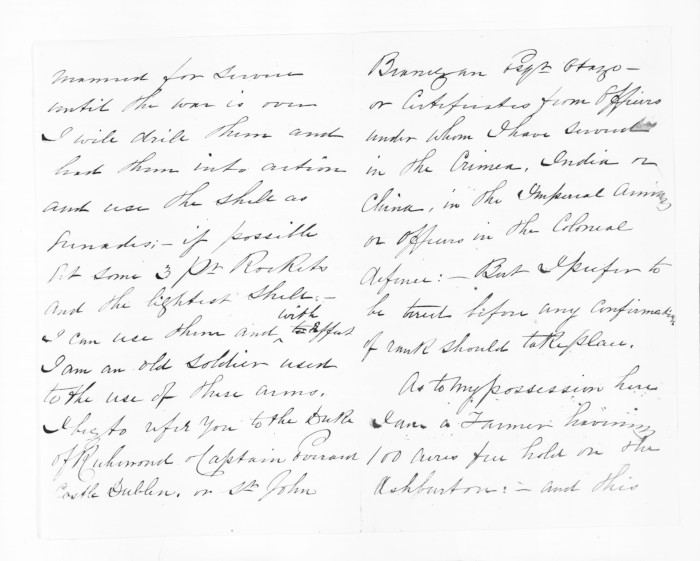 manned for service
until the war is over
I will drill them and
lead them into action
and use the shell as
Grenades;- if possible
Get some 3 Pr Rockets
and the lightest shell:-
I can use them and with effect
I am an old soldier used
to the use of these arms.
I beg to refer you to the Duke
of Richmond Captain
Castle Dublin. or St John
Branigan Esqr Otago-
or Certificates from Officers
under whom I have served
in the Crimea, India or
China, in the Imperial Army
or Officers in the Colonial
defence:- But I prefer to
be tried before any confirmation
of rank should take place.
As to my possession here
I am a Farmer having
100 acres free hold on the
Ashburton:- and this